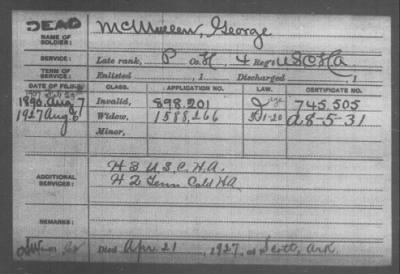 DEAD
NAME OF SOLDIER: McMullen, George
SERVICE: Late rank, P Co. H, 4 Reg't U.S.C.H.A.
TERM OF SERVICE: Enlisted , 1 Discharged , 1
DATE OF FILING. CLASS. APPLICATION NO. LAW. CERTIFICATE NO.
1890. Aug. 7 Invalid, 898.201 745.505
1927 Aug 6 Widow, 1588,266 5-1-20 a8-5-31
Minor,
ADDITIONAL SERVICES: H 3 U.S.C.H.A.
H 2 Tenn Cold H A
REMARKS:
Died Apr. 21, 1927, at Scott, Ark.